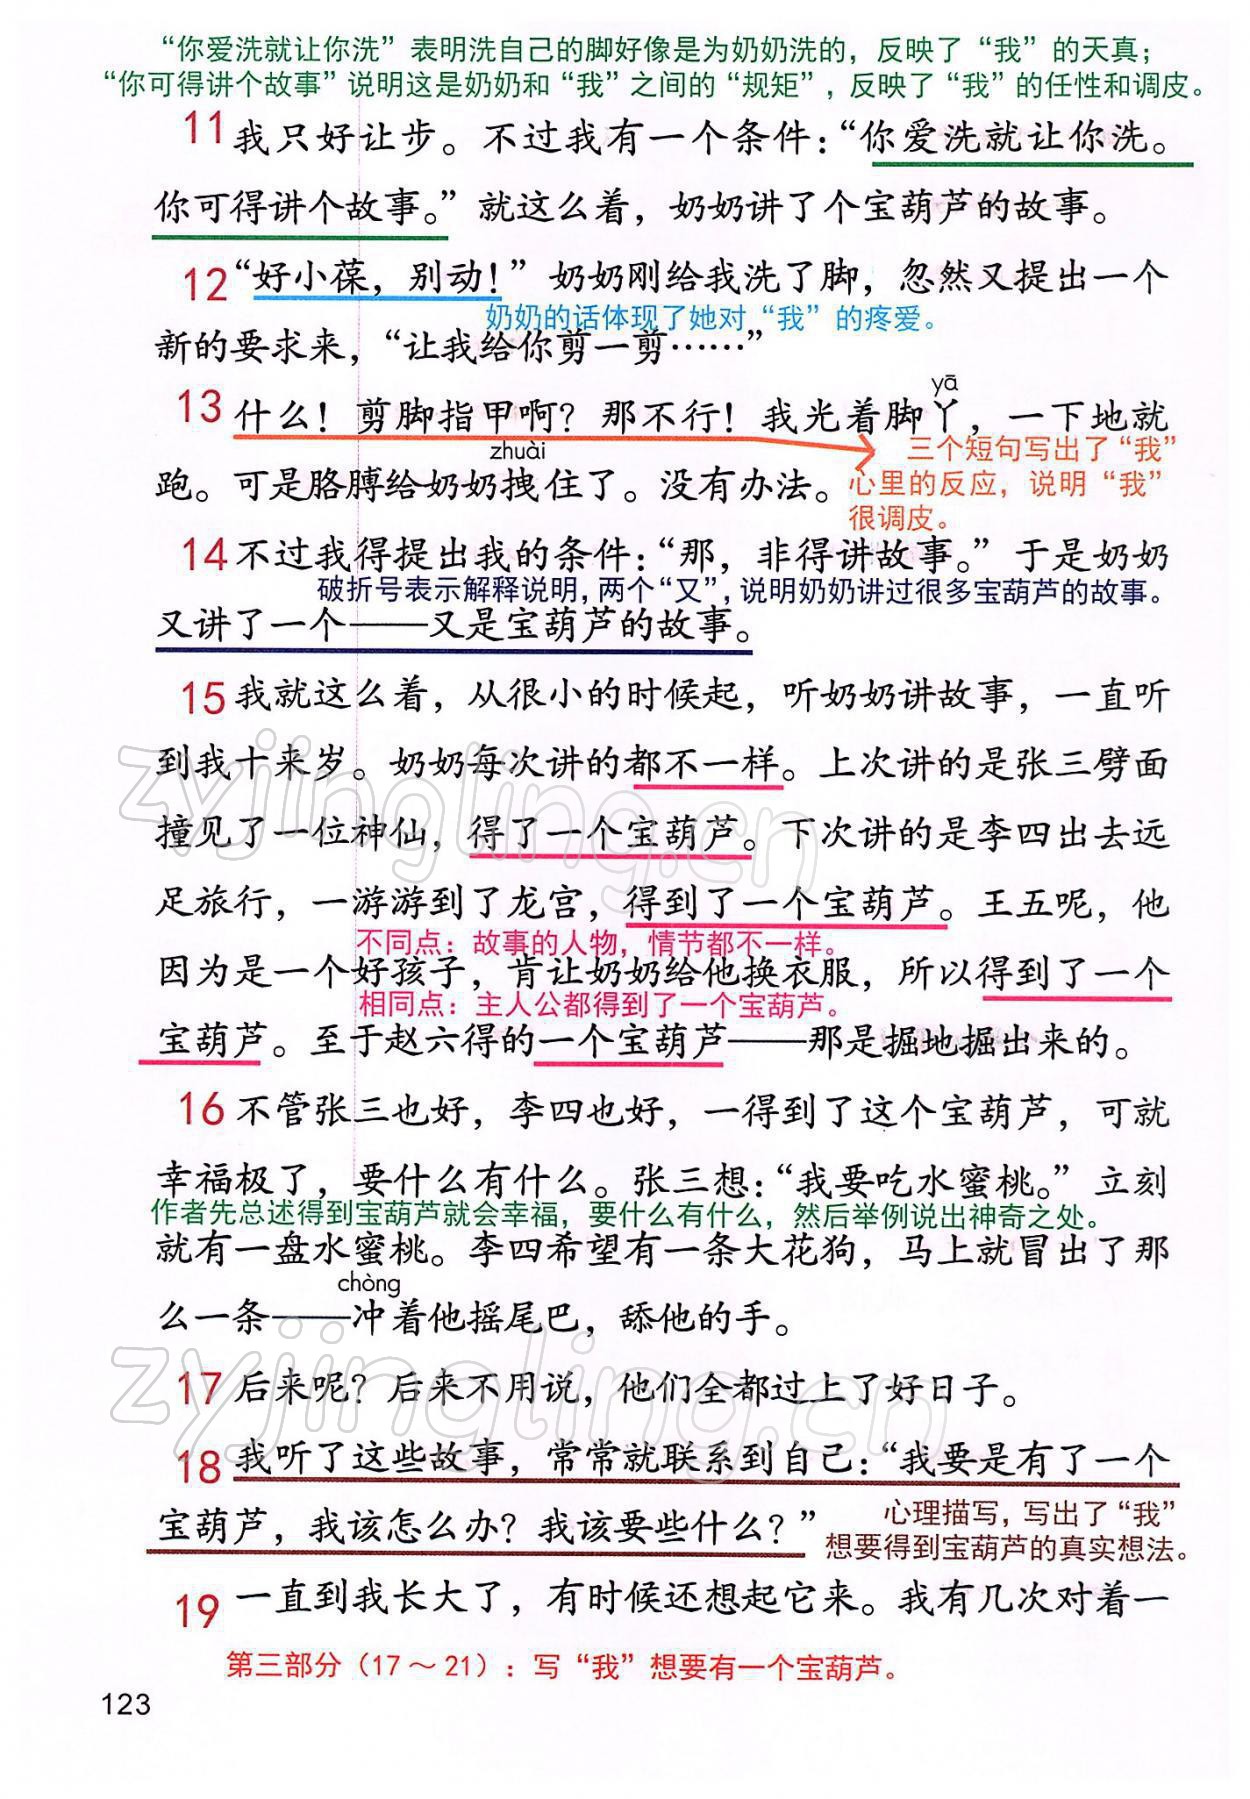 “你爱洗就让你洗”表明洗自己的脚好像是为奶奶洗的，反映了“我”的天真；
“你可得讲个故事”说明这是奶奶和“我”之间的“规矩”，反映了“我”的任性和调皮。
11 我只好让步。不过我有一个条件：“你爱洗就让你洗。
你可得讲个故事。”就这么着，奶奶讲了个宝葫芦的故事。
12 “好小葆，别动！”奶奶刚给我洗了脚，忽然又提出一个
奶奶的话体现了她对“我”的疼爱。
新的要求来，“让我给你剪一剪……”
yā
13 什么！剪脚指甲啊？那不行！我光着脚丫，一下地就
zhuài
三个短句写出了“我”
跑。可是胳膊给奶奶拽住了。没有办法。
心里的反应，说明“我”
很调皮。
14 不过我得提出我的条件：“那，非得讲故事。”于是奶奶
破折号表示解释说明，两个“又”，说明奶奶讲过很多宝葫芦的故事。
又讲了一个——又是宝葫芦的故事。
15 我就这么着，从很小的时候起，听奶奶讲故事，一直听
到我十来岁。奶奶每次讲的都不一样。上次讲的是张三劈面
撞见了一位神仙，得了一个宝葫芦。下次讲的是李四出去远
足旅行，一游游到了龙宫，得到了一个宝葫芦。王五呢，他
不同点：故事的人物，情节都不一样。
因为是一个好孩子，肯让奶奶给他换衣服，所以得到了一个
相同点：主人公都得到了一个宝葫芦。
宝葫芦。至于赵六得的一个宝葫芦——那是掘地掘出来的。
16 不管张三也好，李四也好，一得到了这个宝葫芦，可就
幸福极了，要什么有什么。张三想：“我要吃水蜜桃。”立刻
作者先总述得到宝葫芦就会幸福，要什么有什么，然后举例说出神奇之处。
就有一盘水蜜桃。李四希望有一条大花狗，马上就冒出了那
chòng
么一条——冲着他摇尾巴，舔他的手。
17 后来呢？后来不用说，他们全都过上了好日子。
18 我听了这些故事，常常就联系到自己：“我要是有了一个
宝葫芦，我该怎么办？我该要些什么？”
心理描写，写出了“我”
想要得到宝葫芦的真实想法。
19 一直到我长大了，有时候还想起它来。我有几次对着一
第三部分（17～21）：写“我”想要有一个宝葫芦。
123
zyjingling.cn
zyjingling.cn